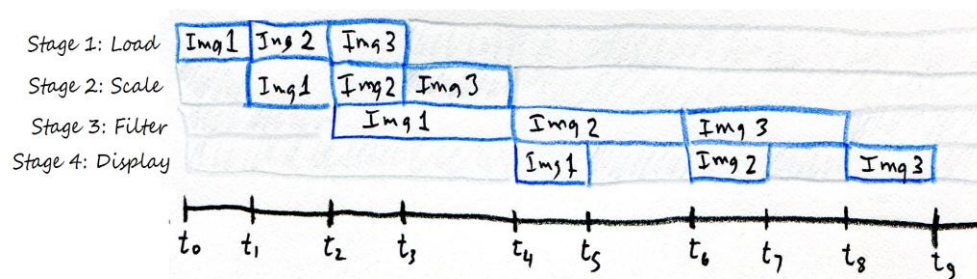 Stage 1: Load Img1 Img 2 Img3
Stage 2: Scale Img1 Img2 Img 3
Stage 3: Filter Img 1 Img 2 Img 3
Stage 4: Display Img1 Img 2 Img3
t0 t1 t2 t3 t4 t5 t6 t7 t8 t9